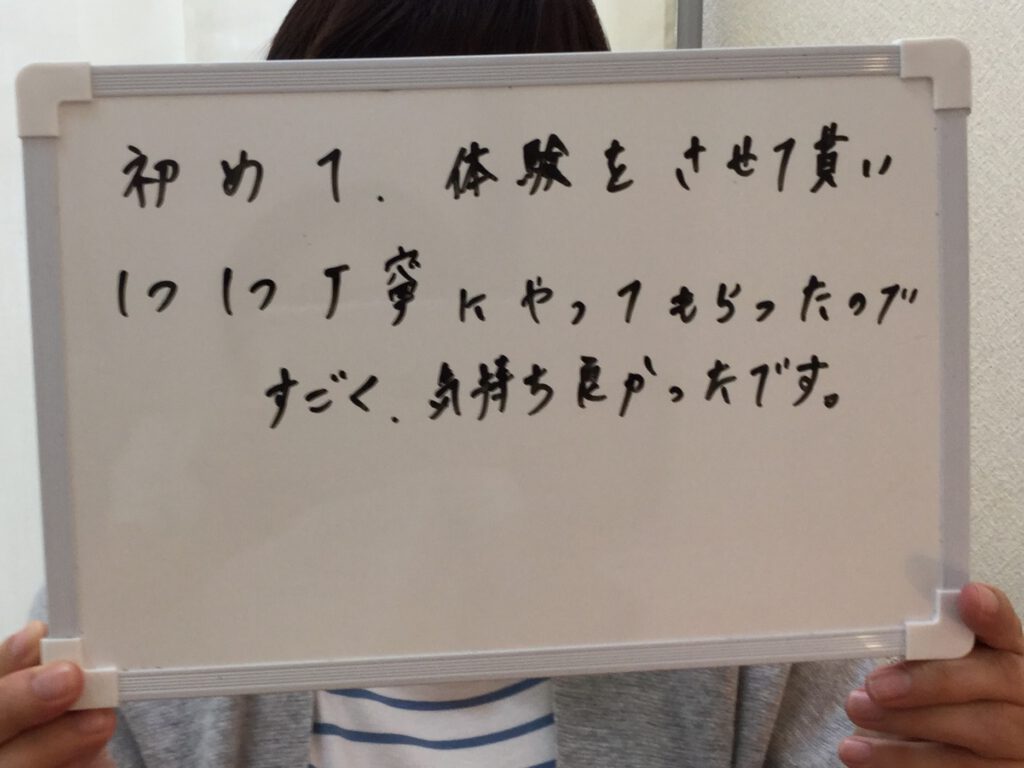 初めて、体験をさせて貰い
1つ1つ丁寧にやってもらったので
すごく、気持ち良かったです。